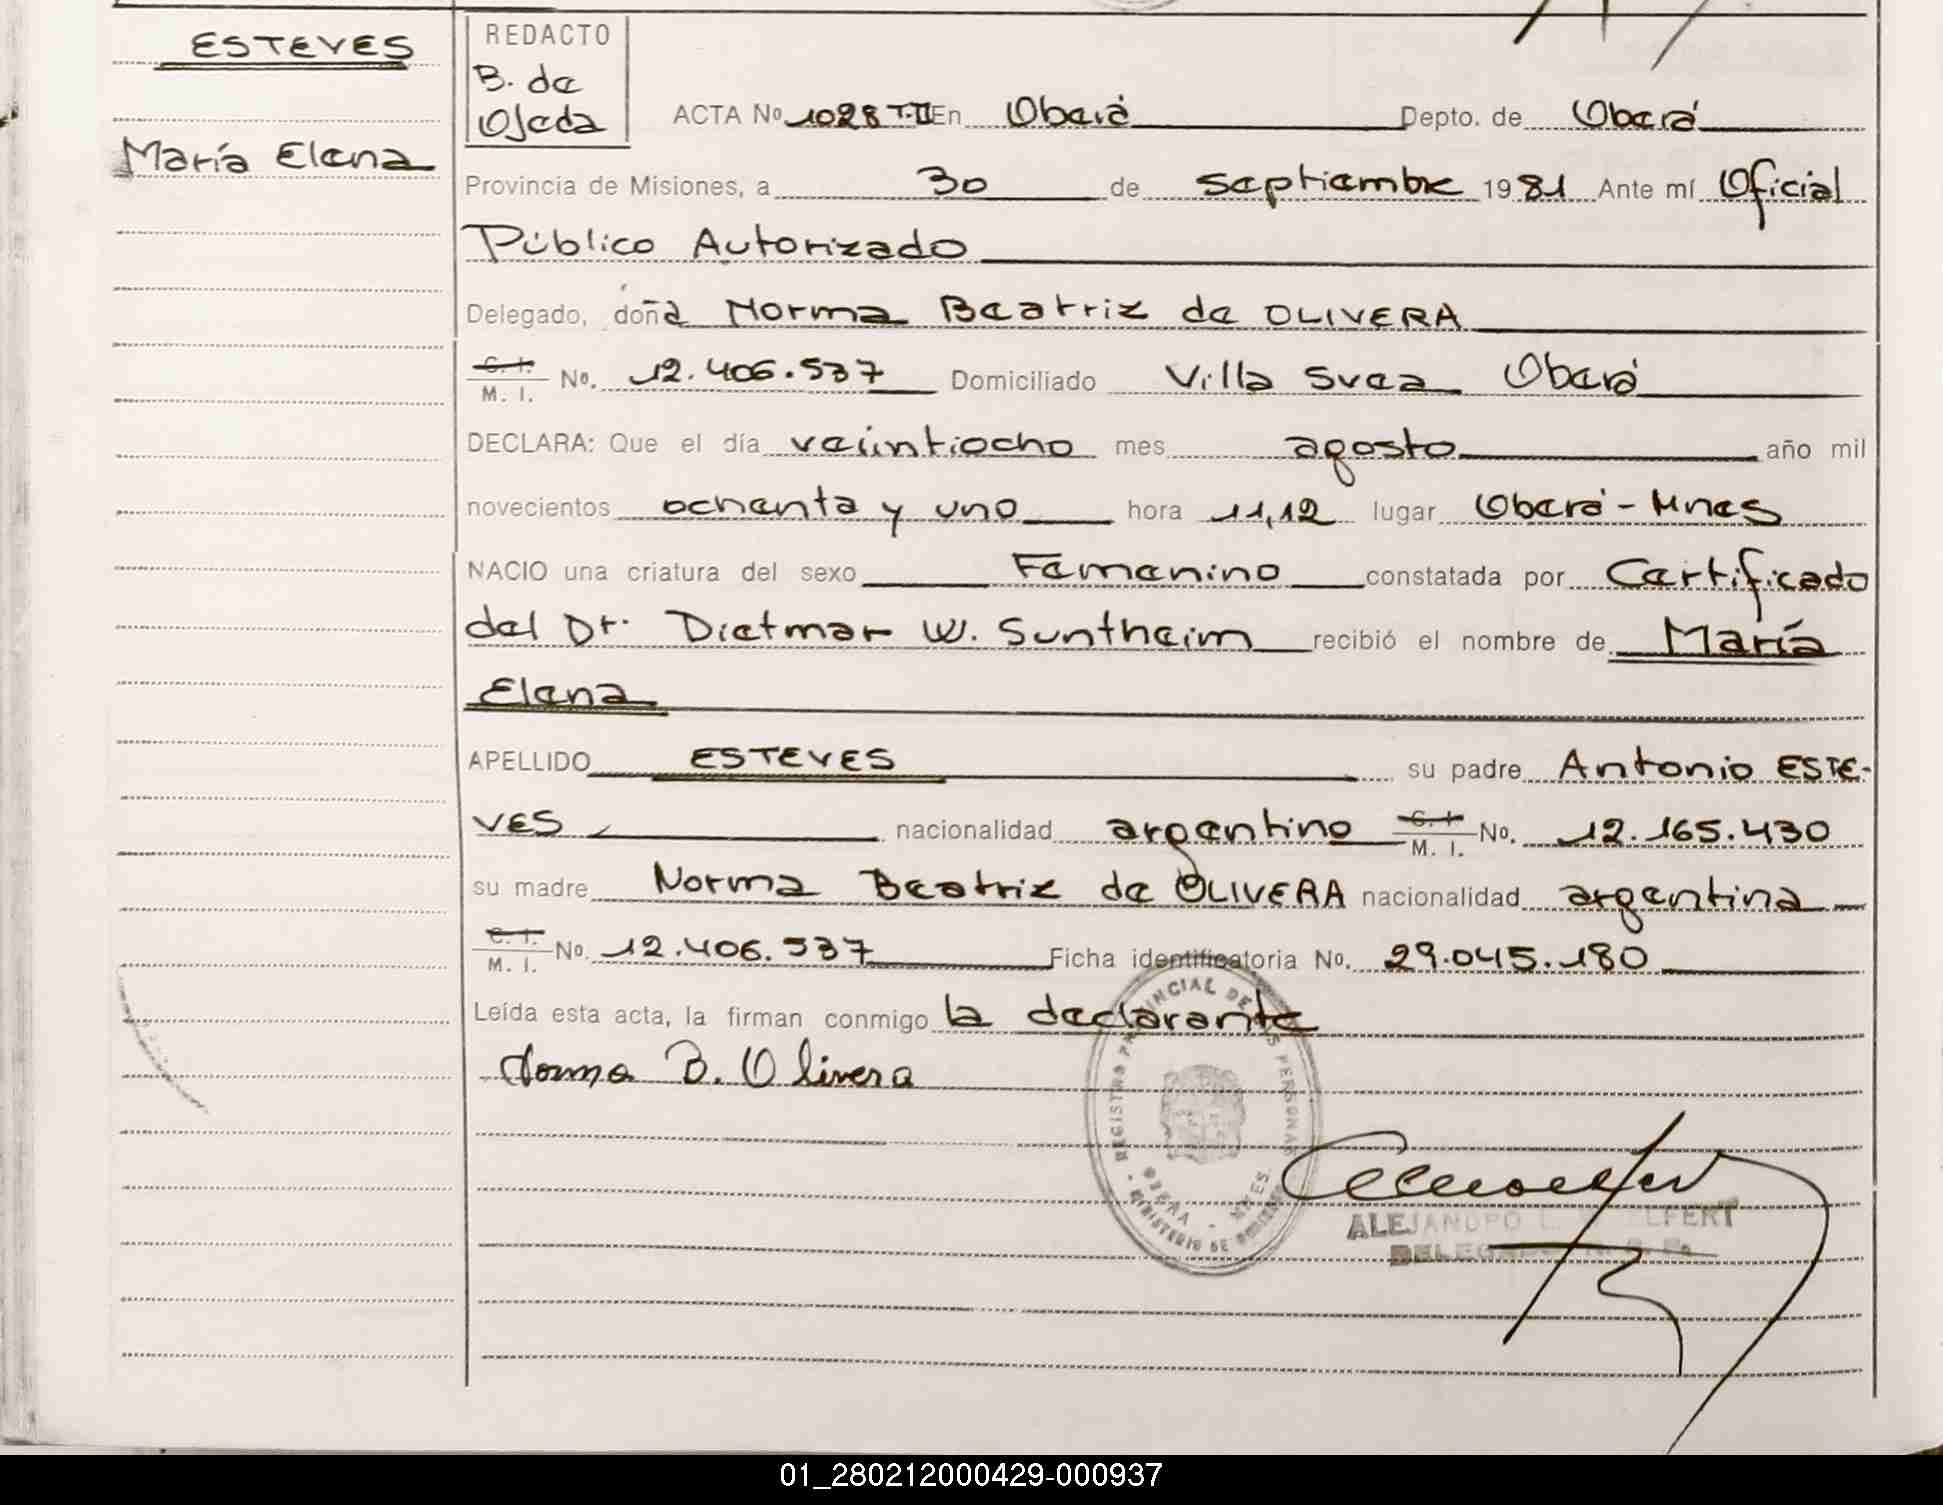 ESTEVES
María Elena
REDACTO
B. de
Ojeda
ACTA No 1028 T-II En Oberá Depto. de Oberá
Provincia de Misiones, a 30 de septiembre 1981 Ante mí Oficial
Público Autorizado
Delegado, doña Norma Beatriz de OLIVERA
C. I.
M. I. No. 12.406.537 Domiciliado Villa Svea Oberá
DECLARA: Que el día veiintiocho mes agosto año mil
novecientos ochenta y uno hora 11,12 lugar Oberá - Mnes
NACIO una criatura del sexo Femenino constatada por Certificado
del Dr. Dietmar W. Suntheim recibió el nombre de María
Elena
APELLIDO ESTEVES su padre Antonio ESTE-
VES nacionalidad argentino C. I. M. I. No. 12.165.430
su madre Norma Beatriz de OLIVERA nacionalidad argentina
C. I.
M. I. No. 12.406.537 Ficha identificatoria No. 29.045.180
Leída esta acta, la firman conmigo la declarante
Norma B. Olivera
REGISTRO PROVINCIAL DE LAS PERSONAS
OBERA - MNES.
MINISTERIO DE GOBIERNO
ALEJANDRO L.
DELEGADO
01_280212000429-000937